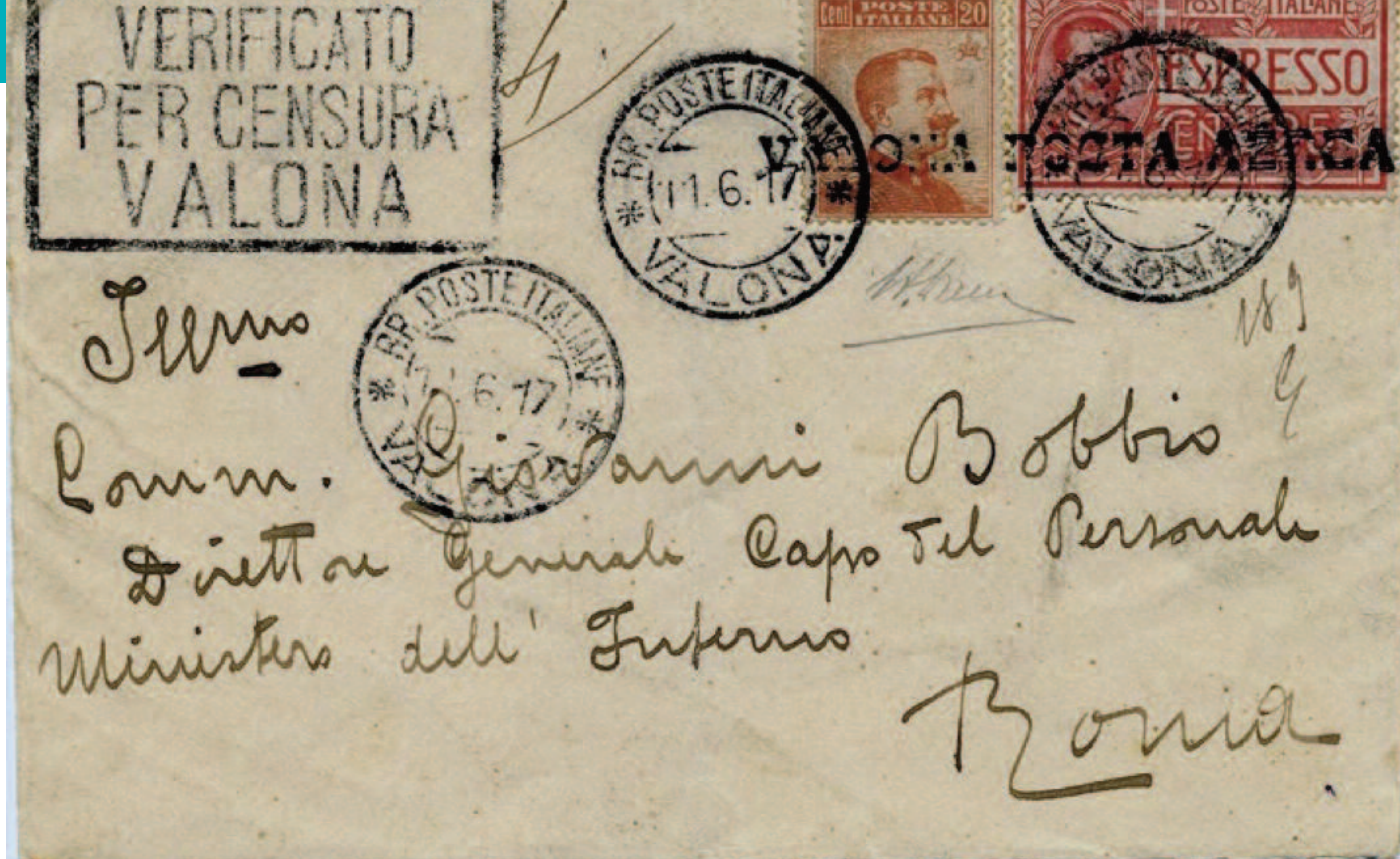 VERIFICATO
PER CENSURA
VALONA
Cent POSTE ITALIANE 20
POSTE ITALIANE
ESPRESSO
VALONA POSTA AEREA
RR. POSTE ITALIANE
11.6.17
VALONA
RR. POSTE ITALIANE
6.17
VALONA
RR. POSTE ITALIANE
6.17
VALONA
189
Illmo
Comm. Giovanni Bobbio
Direttore Generale Capo del Personale
Ministero dell' Interno
Roma